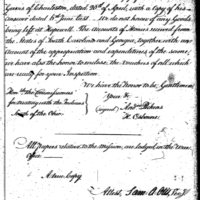 Govens of Charleston, dated 30th of April, with a Copy of his
answer dated 6th June last. — We do not know of any Goods
being left at Hopewell. The Accounts of Monies received from
the States of North Carolina and Georgia, together with our
Account of the appropriation and expenditures of the same,
we have also the honor to enclose, the vouchers of all which
are ready for your Inspection.
We have the Honor to be, Gentlemen
Your &c
(signed) Andw Pickens
H. Osborne.
Honble the Commissioners
for treating with the Indians
South of the Ohio.
All papers relative to the mission, are lodged in the War
Office —
A true Copy
Attest, Sam A. Otis Secy